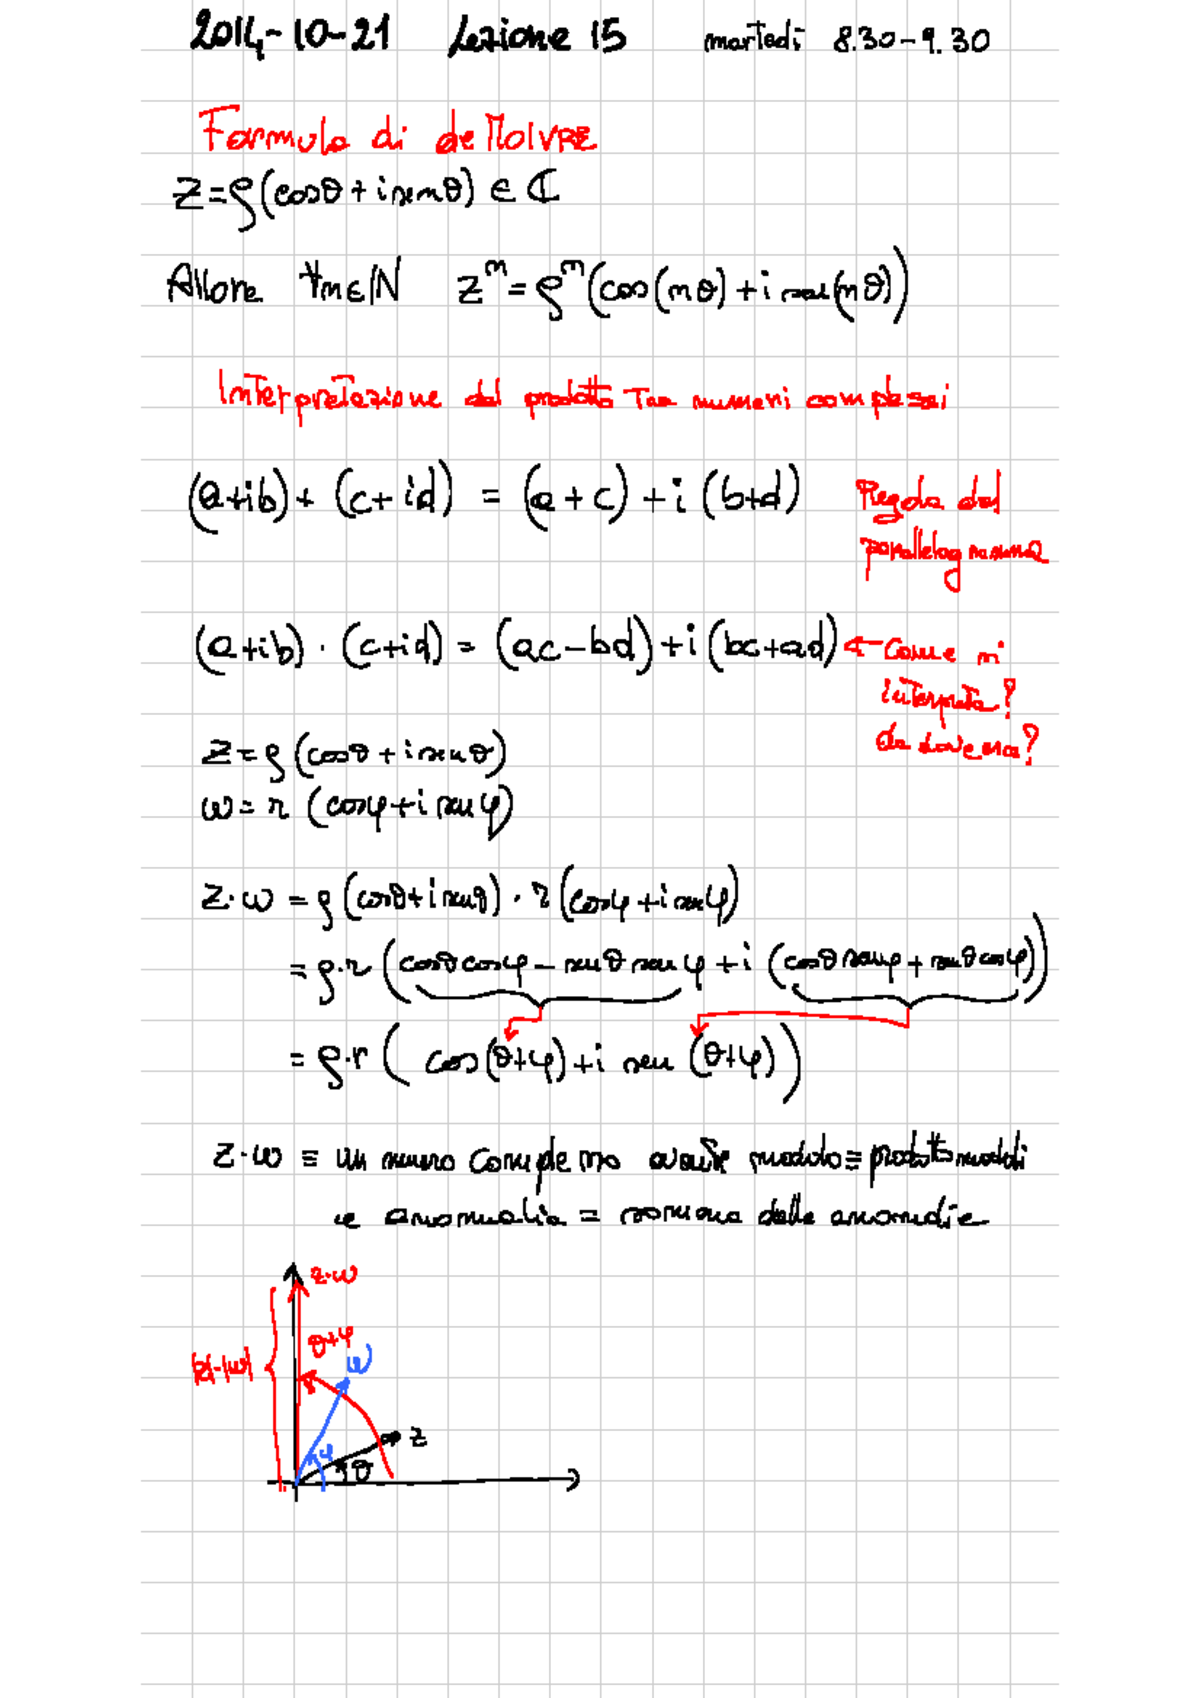 2014-10-21 Lezione 15 martedì 8.30-9.30
Formula di de MOIVRE
z=ρ(cosθ+i senθ) ∈ ℂ
Allora ∀n∈ℕ zⁿ=ρⁿ(cos(nθ)+i sen(nθ))
Interpretazione del prodotto tra numeri complessi
(a+ib)+(c+id) = (a+c)+i(b+d) Regola del
parallelogramma
(a+ib)·(c+id) = (ac-bd)+i(bc+ad) ← Come si
interpreta?
da dove esce?
z=ρ(cosθ+i senθ)
w=r(cosφ+i senφ)
z·w = ρ(cosθ+i senθ)·r(cosφ+i senφ)
=ρ·r(cosθcosφ-senθsenφ+i(cosθsenφ+senθcosφ))
=ρ·r(cos(θ+φ)+i sen(θ+φ))
z·w ≡ un numero complesso avente modulo = prodotto moduli
e anomalia = somma delle anomalie
z·w
θ+φ
|z|·|w|
w
z
φ
θ